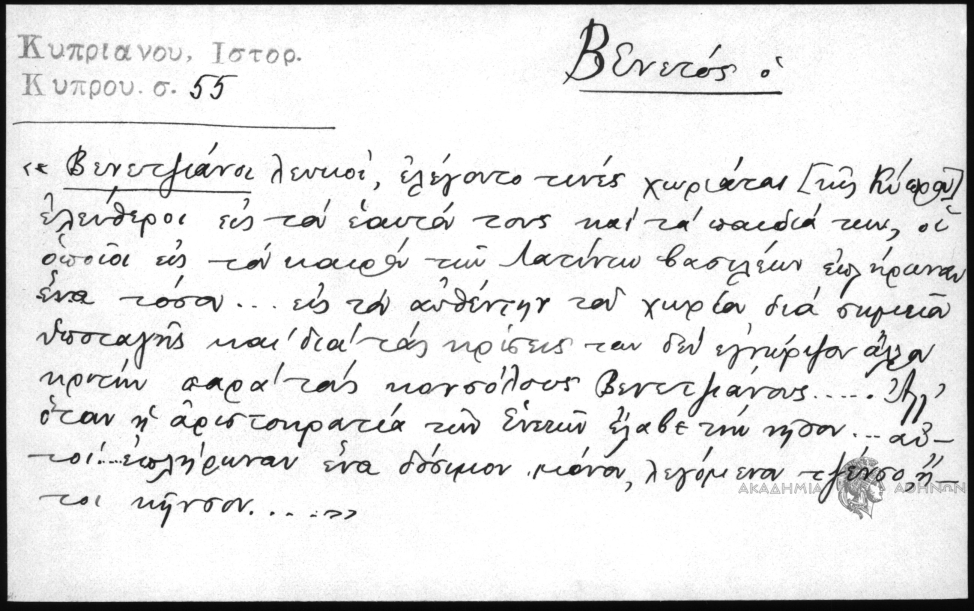 Κυπριανου, Ιστορ.
Κυπρου. σ. 55
Βενετός ὁ
«Βενετζιάνοι λευκοί, ἐλέγοντο τινές χωριάται [τῆς Κύπρου]
ἐλεύθεροι εἰς τόν ἑαυτό τους καί τά παιδιά των, οἱ
ὁποῖοι εἰς τόν καιρόν τῶν Λατίνων βασιλέων ἐπλήρωναν
ἕνα τόσον... εἰς τόν αὐθέντην τοῦ χωρίου διά σημεῖον
ὑποταγῆς καί διά τάς κρίσεις των δέν ἐγνώριζον ἄλλον
κριτήν παρά τούς κονσόλους Βενετζιάνους..... Ἀλλ'
ὅταν ἡ ἀριστοκρατία τῶν Ἑνετῶν ἔλαβε τήν νῆσον... αὐ-
τοί... ἐπλήρωναν ἕνα δόσιμον μόνον, λεγόμενον τζένσο, ἤ-
τοι κῆνσον.....»
ΑΚΑΔΗΜΙΑ ΑΘΗΝΩΝ